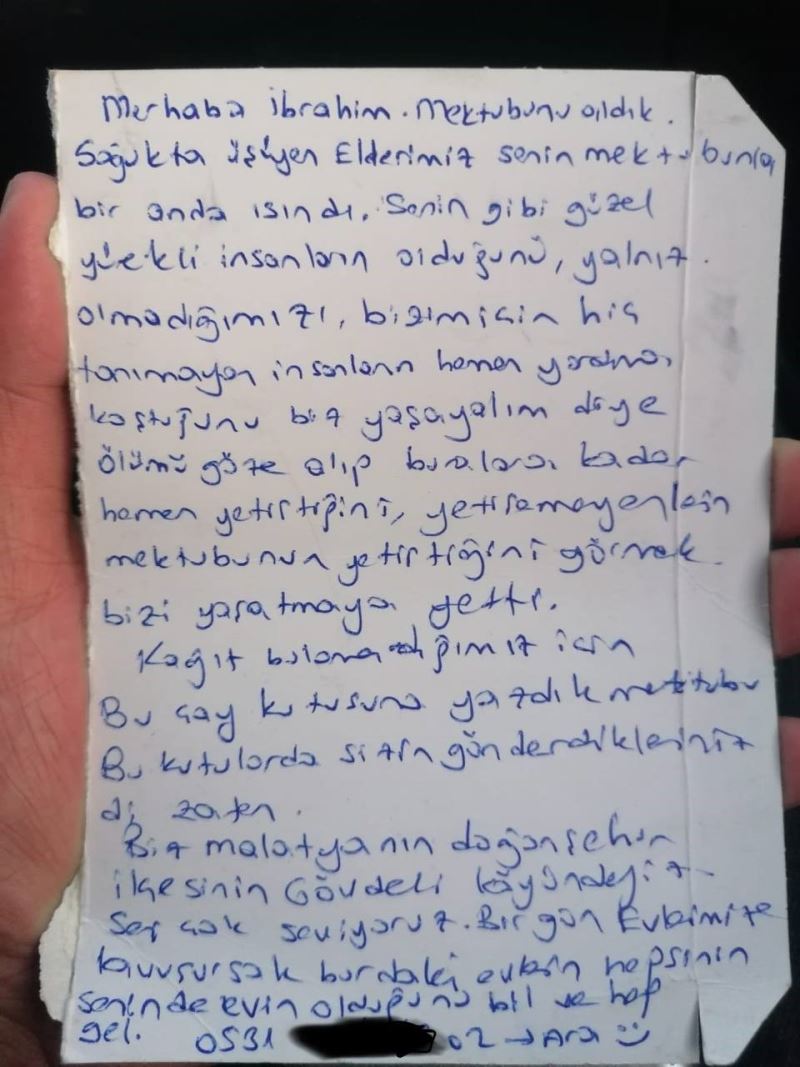 Merhaba İbrahim. Mektubunu aldık.
Soğukta üşüyen Ellerimiz senin mektubunla
bir anda ısındı. Senin gibi güzel
yürekli insanların olduğunu, yalnız
olmadığımızı, bizim için hiç
tanımayan insanların hemen yardıma
koştuğunu biz yaşayalım diye
ölümü göze alıp buralara kadar
hemen yetiştiğini, yetişemeyenlerin
mektubunun yetiştiğini görmek
bizi yaşatmaya yetti.
Kağıt bulamadığımız için
Bu çay kutusuna yazdık mektubu
Bu kutularda sizin gönderdikleriniz
di zaten.
Biz malatyanın doğanşehir
ilçesinin Gövdeli köyündeyiz
Seni çok seviyoruz. Bir gün Evlerimize
kavuşursak burdaki evlerin hepsinin
seninde evin olduğunu bil ve hep
gel. 0531 02 → Ara :)